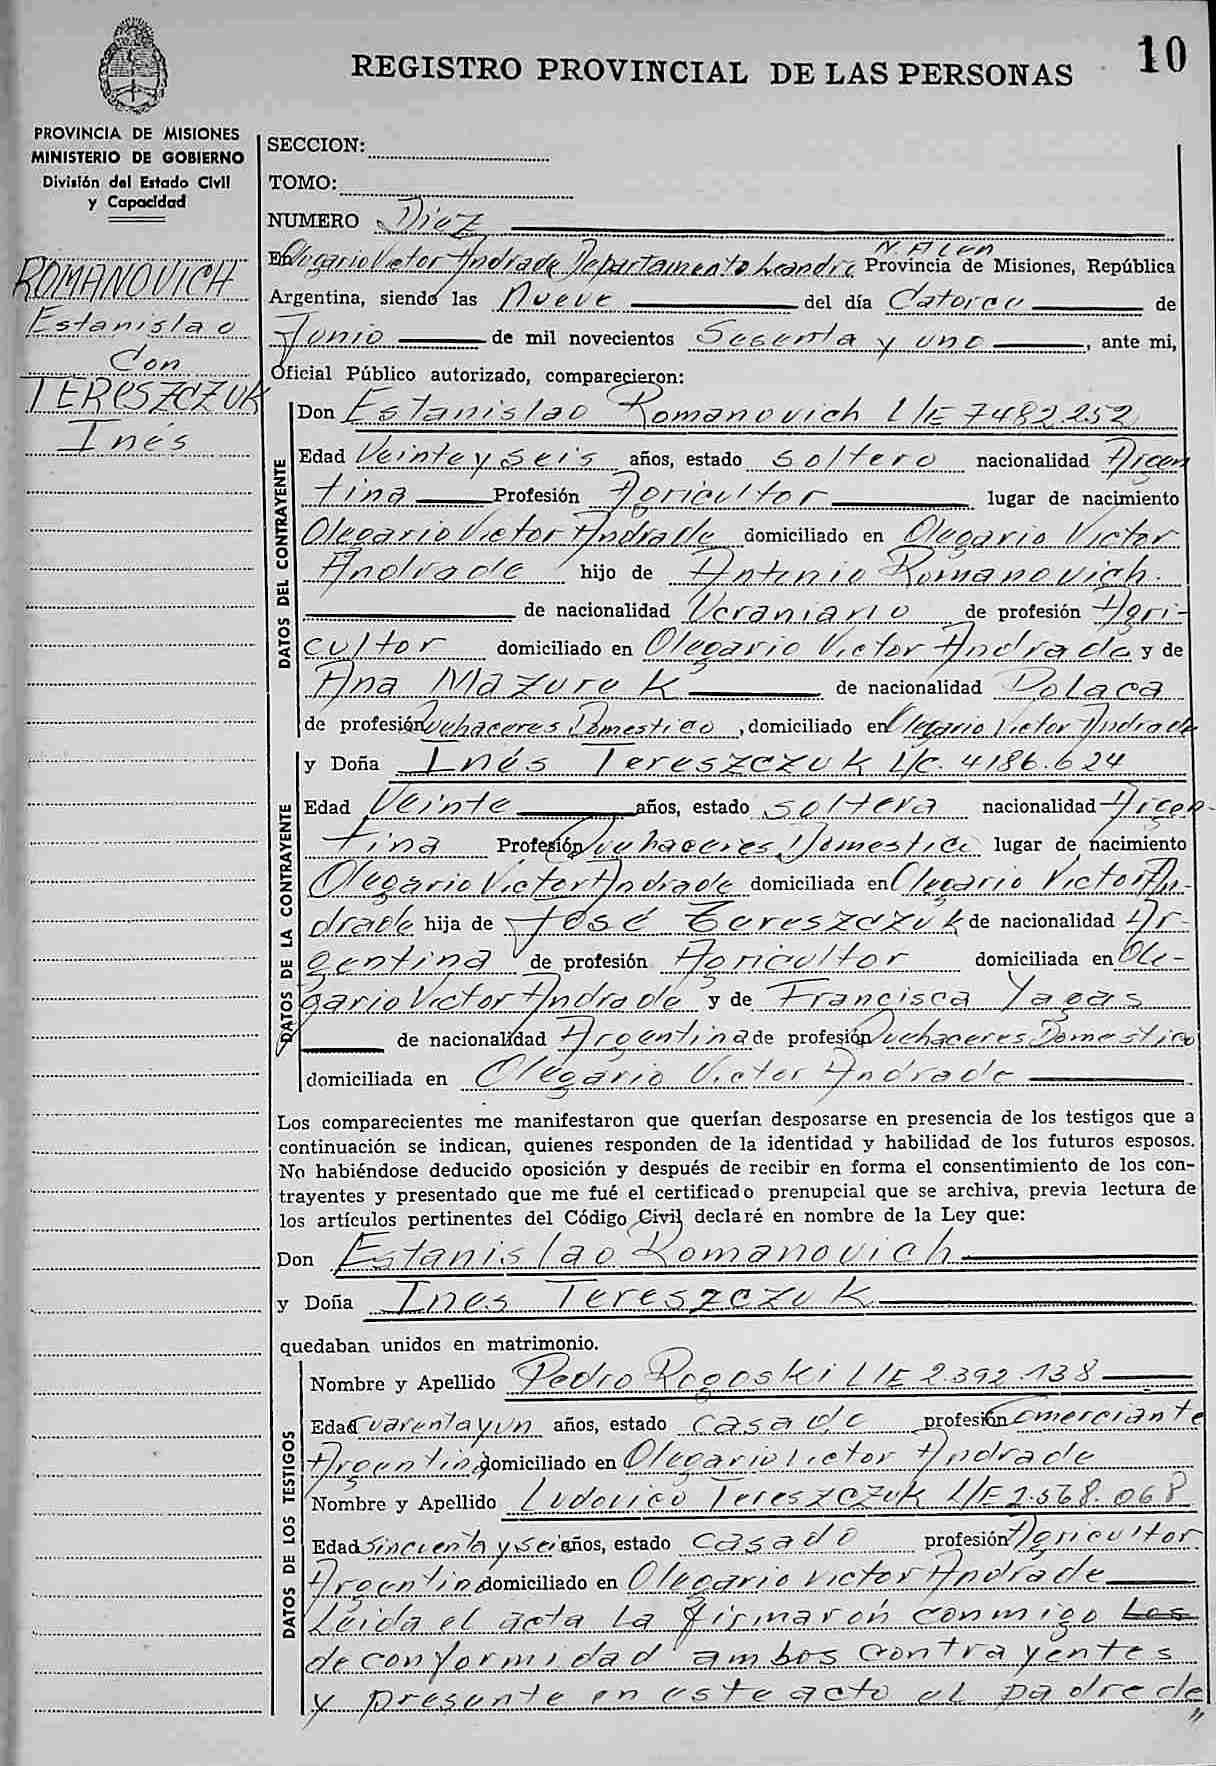 10
REGISTRO PROVINCIAL DE LAS PERSONAS
PROVINCIA DE MISIONES
MINISTERIO DE GOBIERNO
División del Estado Civil
y Capacidad
ROMANOVICH
Estanislao
Con
TERESZCZUK
Inés
SECCION:
TOMO:
NUMERO Diez
N. Alen
En Olegario Victor Andrade Departamento Leandro Provincia de Misiones, República
Argentina, siendo las Nueve del día Catorce de
Junio de mil novecientos Sesenta y uno, ante mi,
Oficial Público autorizado, comparecieron:
DATOS DEL CONTRAYENTE
Don Estanislao Romanovich L/E 7482.252
Edad Veinte y seis años, estado soltero nacionalidad Argen
tina Profesión Agricultor lugar de nacimiento
Olegario Victor Andrade domiciliado en Olegario Victor
Andrade hijo de Antonio Romanovich.
de nacionalidad Ucraniano de profesión Agri-
cultor domiciliado en Olegario Victor Andrade y de
Ana Mazurek de nacionalidad Polaca
de profesión Quehaceres Domestico, domiciliado en Olegario Victor Andrade
DATOS DE LA CONTRAYENTE
y Doña Inés Tereszczuk L/C. 4186.624
Edad Veinte años, estado soltera nacionalidad Argen-
tina Profesión Quehaceres Domestico lugar de nacimiento
Olegario Victor Andrade domiciliada en Olegario Victor An-
drade hija de José Tereszczuk de nacionalidad Ar-
gentina de profesión Agricultor domiciliada en Ole-
gario Victor Andrade y de Francisca Yagas
de nacionalidad Argentina de profesión Quehaceres Domestico
domiciliada en Olegario Victor Andrade
Los comparecientes me manifestaron que querían desposarse en presencia de los testigos que a
continuación se indican, quienes responden de la identidad y habilidad de los futuros esposos.
No habiéndose deducido oposición y después de recibir en forma el consentimiento de los con-
trayentes y presentado que me fué el certificado prenupcial que se archiva, previa lectura de
los artículos pertinentes del Código Civil declaré en nombre de la Ley que:
Don Estanislao Romanovich
y Doña Ines Tereszczuk
quedaban unidos en matrimonio.
DATOS DE LOS TESTIGOS
Nombre y Apellido Pedro Rogoski L/E 2.392.138
Edad Cuarenta y un años, estado casado profesión Comerciante
Argentino domiciliado en Olegario Victor Andrade
Nombre y Apellido Ludovico Tereszczuk L/E 2.568.068
Edad Sincuenta y seis años, estado casado profesión Agricultor
Argentino domiciliado en Olegario Victor Andrade
Leida el acta la firmarón conmigo Los
de conformidad ambos contrayentes
y presente en este acto el padre de
"